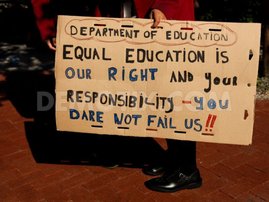 DEPARTMENT OF EDUCATION
EQUAL EDUCATION IS
OUR RIGHT AND your
RESPONSIBILITY - YOU
DARE NOT FAIL US!!